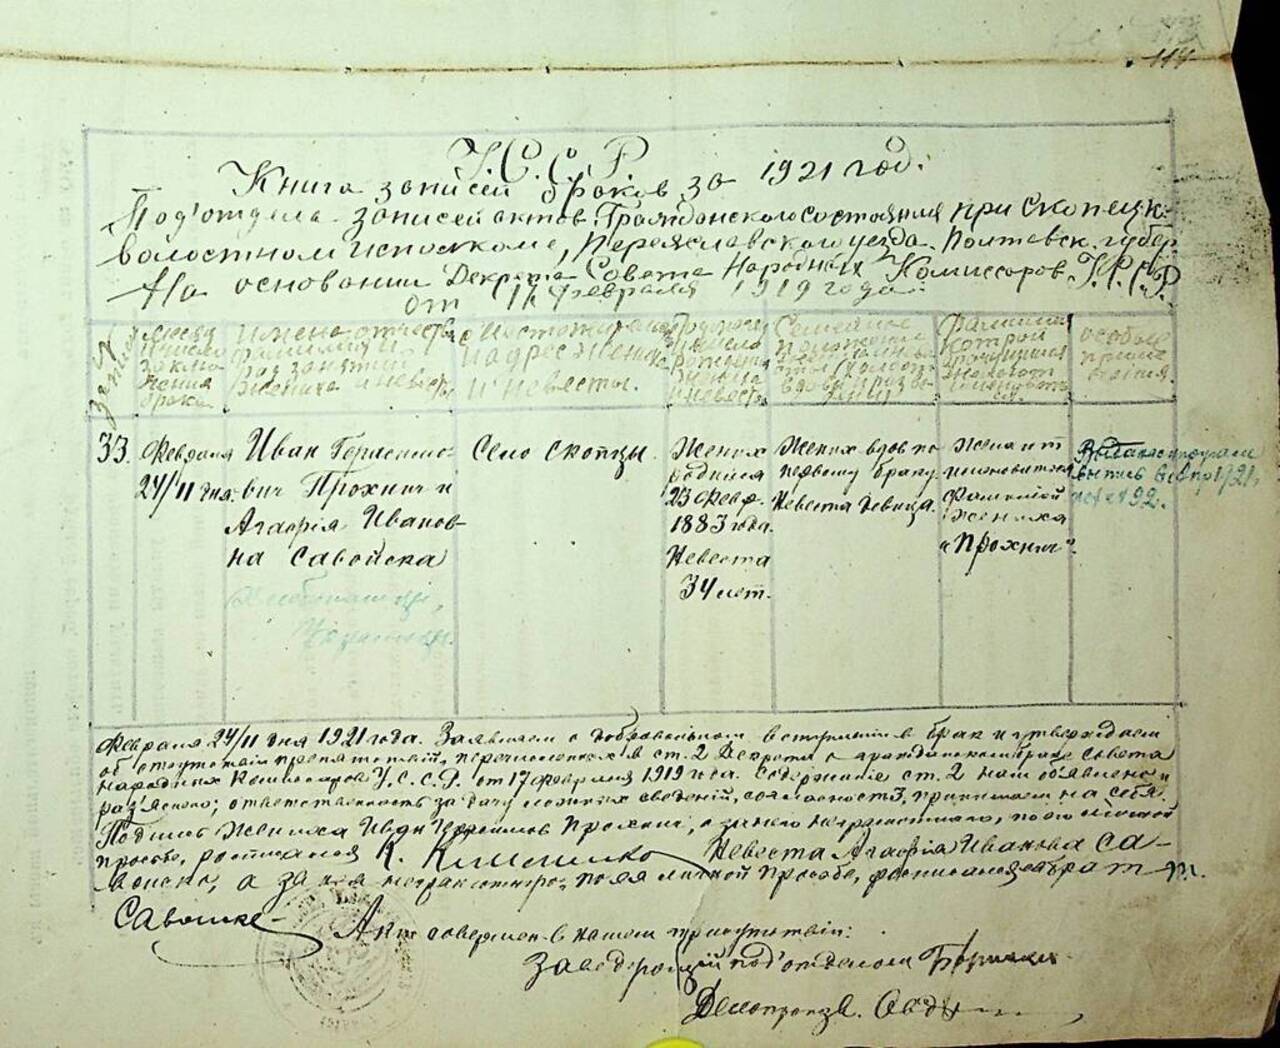 114
У.С.С.Р.
Книга записей браков за 1921 год.
Под'отдела записей актов Гражданского состояния при Скопецк.
волостном исполкоме, Переяславского уезда Полтавск. губер.
На основании Декрета Совета Народных Комиссаров У.С.С.Р.
от февраля 1919 года.
№ записи
Месяц и число заключения брака
Имена отчества фамилии и род занятий жениха и невесты
Местожирание и адрес жениха и невесты.
число рождения жениха и невесты
Семейное положение вдовы
Фамилия которой брачущиеся желают именоваться
особые примечания.
33.
Февраля
24/11 дня.
Иван Герасимо-
вич Прохнич и
Агафія Иванов-
на Савойска
Хлебопашцы,
Село Скопцы.
Жених
родился
23 Февр.
1883 года.
Невеста
34 лет.
Жених вдов по
первому браку
Невеста девица.
Жена
именоваться
фамилией
жениха
"Прохнич".
Февраля 24/11 дня 1921 года. Заявляем о добровольном вступлении в брак и утверждаем
об отсутствии препятствий, перечисленных в ст. 2 Декрета о гражданском браке Совета
народных Комиссаров У.С.С.Р. от 17 февраля 1919 года. Содержание ст. 2 нам об'явлено и
раз'яснено; ответственность за дачу ложных сведений, принимаем на себя.
Подпись Жениха Иван Прохнич, а за него неграмотного, по его личной
просьбе, росписался Невеста Агафія Иванова Са-
войска, а за нея неграмотную, по ея личной просьбе, росписался брат
Акт совершен в нашем присутствіи:
Заведующий под'отделом
Делопроизв.